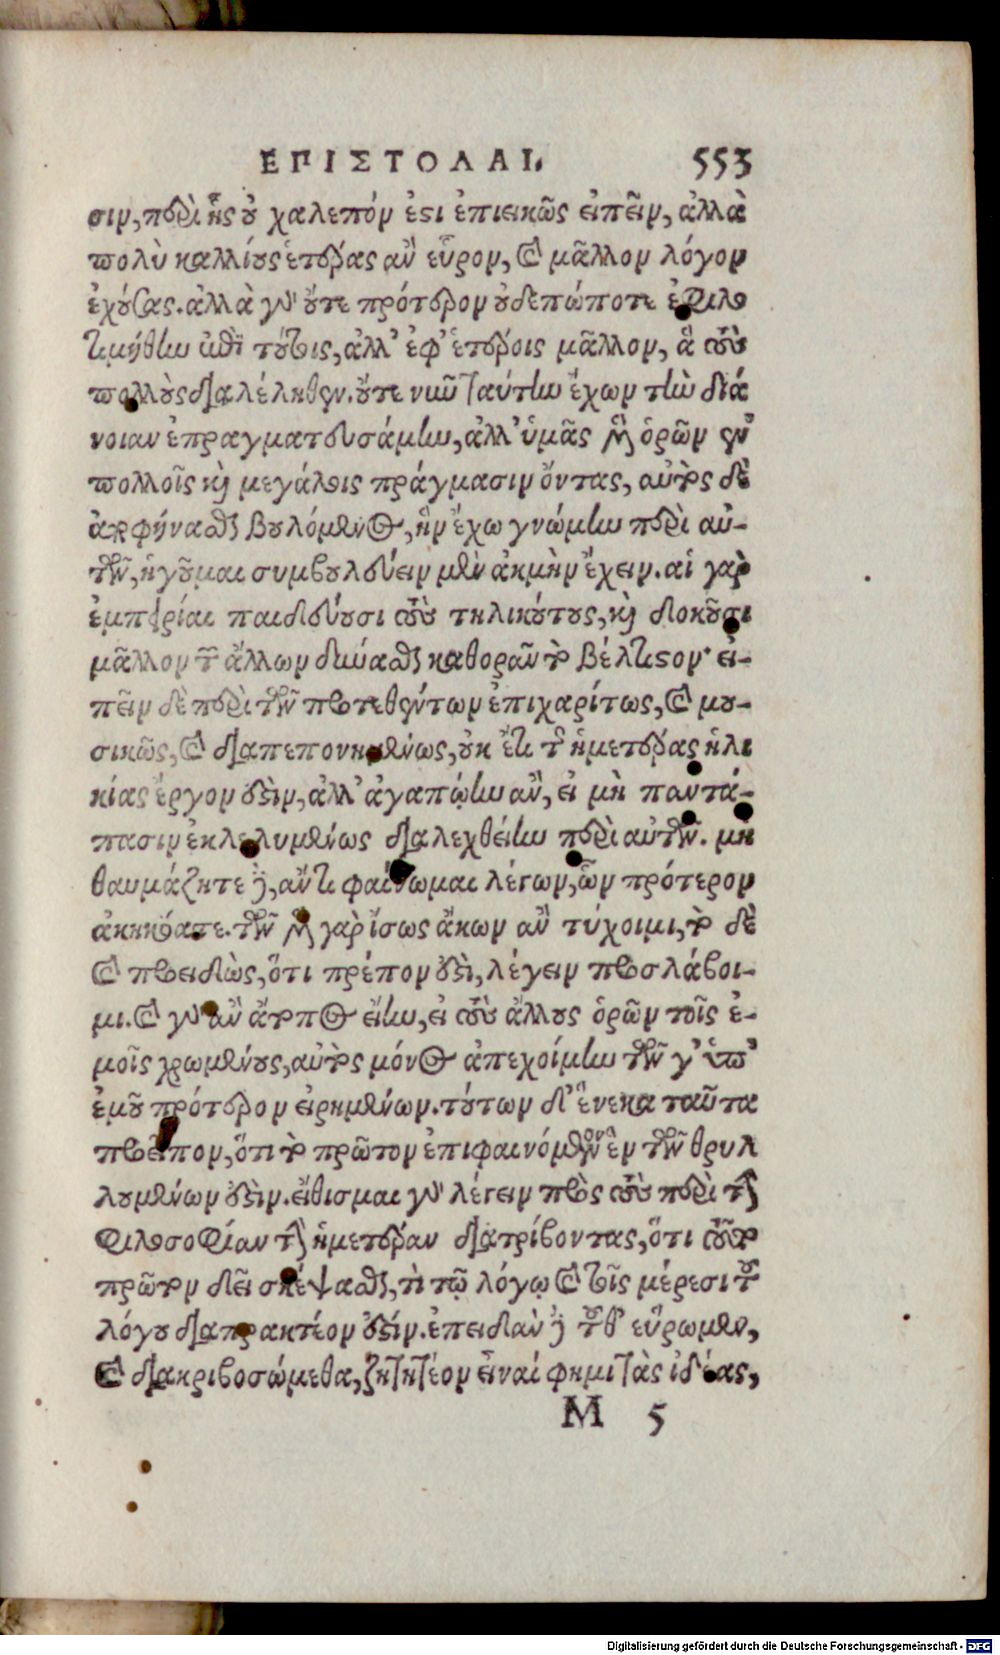 ΕΠΙΣΤΟΛΑΙ. 553
σιν, περὶ ἧς οὐ χαλεπόν ἐστι ἐπιεικῶς εἰπεῖν, ἀλλὰ
πολὺ καλλίους ἑτέρας ἂν εὗρον, καὶ μᾶλλον λόγον
ἐχούσας. ἀλλὰ γὰρ οὔτε πρότερον οὐδεπώποτε ἐφιλο
τιμήθην ἐπὶ τούτοις, ἀλλ' ἐφ' ἑτέροις μᾶλλον, ἃ τοὺς
πολλοὺς διαλέληθεν. οὔτε νῦν ταύτην ἔχων τὴν διά
νοιαν ἐπραγματευσάμην, ἀλλ' ὑμᾶς μὲν ὁρῶν ἐν
πολλοῖς καὶ μεγάλοις πράγμασιν ὄντας, αὐτὸς δὲ
ἀποφήνασθαι βουλόμενος, ἣν ἔχω γνώμην περὶ αὐ-
τῶν, ἡγοῦμαι συμβουλεύειν μὲν ἀκμὴν ἔχειν. αἱ γὰρ
ἐμπειρίαι παιδεύουσι τοὺς τηλικούτους, καὶ διοκοῦσι
μᾶλλον τῶν ἄλλων δύνασθαι καθορᾶν τὸ βέλτιστον· εἰ-
πεῖν δὲ περὶ τῶν προτεθέντων ἐπιχαρίτως, καὶ μου-
σικῶς, καὶ διαπεπονημένως, οὐκ ἔτι τῆς ἡμετέρας ἡλι
κίας ἔργον ἐστὶν, ἀλλ' ἀγαπῴην ἂν, εἰ μὴ παντά-
πασιν ἐκλελυμένως διαλεχθείην περὶ αὐτῶν. μὴ
θαυμάζητε δὲ, ἄν τι φαίνωμαι λέγων, ὧν πρότερον
ἀκηκόατε. τῶν μὲν γὰρ ἴσως ἄκων ἂν τύχοιμι, τὸ δὲ
καὶ προειδὼς, ὅτι πρέπον ἐστὶ, λέγειν προσλάβοι-
μι. καὶ γὰρ ἂν ἄτοπος εἴην, εἰ τοὺς ἄλλους ὁρῶν τοῖς ἐ-
μοῖς χρωμένους, αὐτὸς μόνος ἀπεχοίμην τῶν γ' ὑπ'
ἐμοῦ πρότερον εἰρημένων. τούτων δ' ἕνεκα ταῦτα
προεῖπον, ὅτι τὸ πρῶτον ἐπιφαινόμενον ἓν τῶν θρυλ
λουμένων ἐστὶν. εἴθισμαι γὰρ λέγειν πρὸς τοὺς περὶ τὴν
φιλοσοφίαν τὴν ἡμετέραν διατρίβοντας, ὅτι τοῦτο
πρῶτον δεῖ σκέψασθαι, τὶ τῷ λόγῳ καὶ τοῖς μέρεσι τοῦ
λόγου διαπρακτέον ἐστίν. ἐπειδὰν δὲ τοῦθ' εὕρωμεν,
καὶ διακριβοσώμεθα, ζητητέον εἶναί φημι τὰς ἰδέας,
M 5
Digitalisierung gefördert durch die Deutsche Forschungsgemeinschaft - DFG